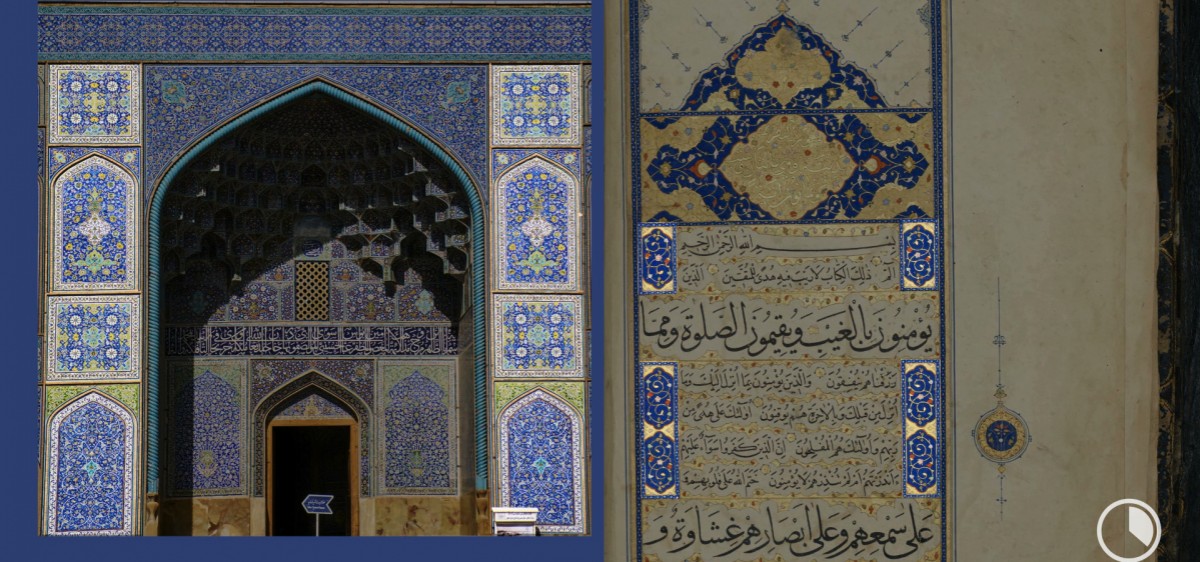 بسم الله الرحمن الرحيم
الم ذلك الكتاب لا ريب فيه هدى للمتقين الذين
يؤمنون بالغيب ويقيمون الصلوة ومما
رزقناهم ينفقون والذين يؤمنون بما انزل اليك وما
انزل من قبلك وبالاخرة هم يوقنون اولئك على هدى من
ربهم واولئك هم المفلحون ان الذين كفروا سواء عليهم
ءانذرتهم ام لم تنذرهم لا يؤمنون ختم الله على قلوبهم و
على سمعهم وعلى ابصارهم غشاوة و